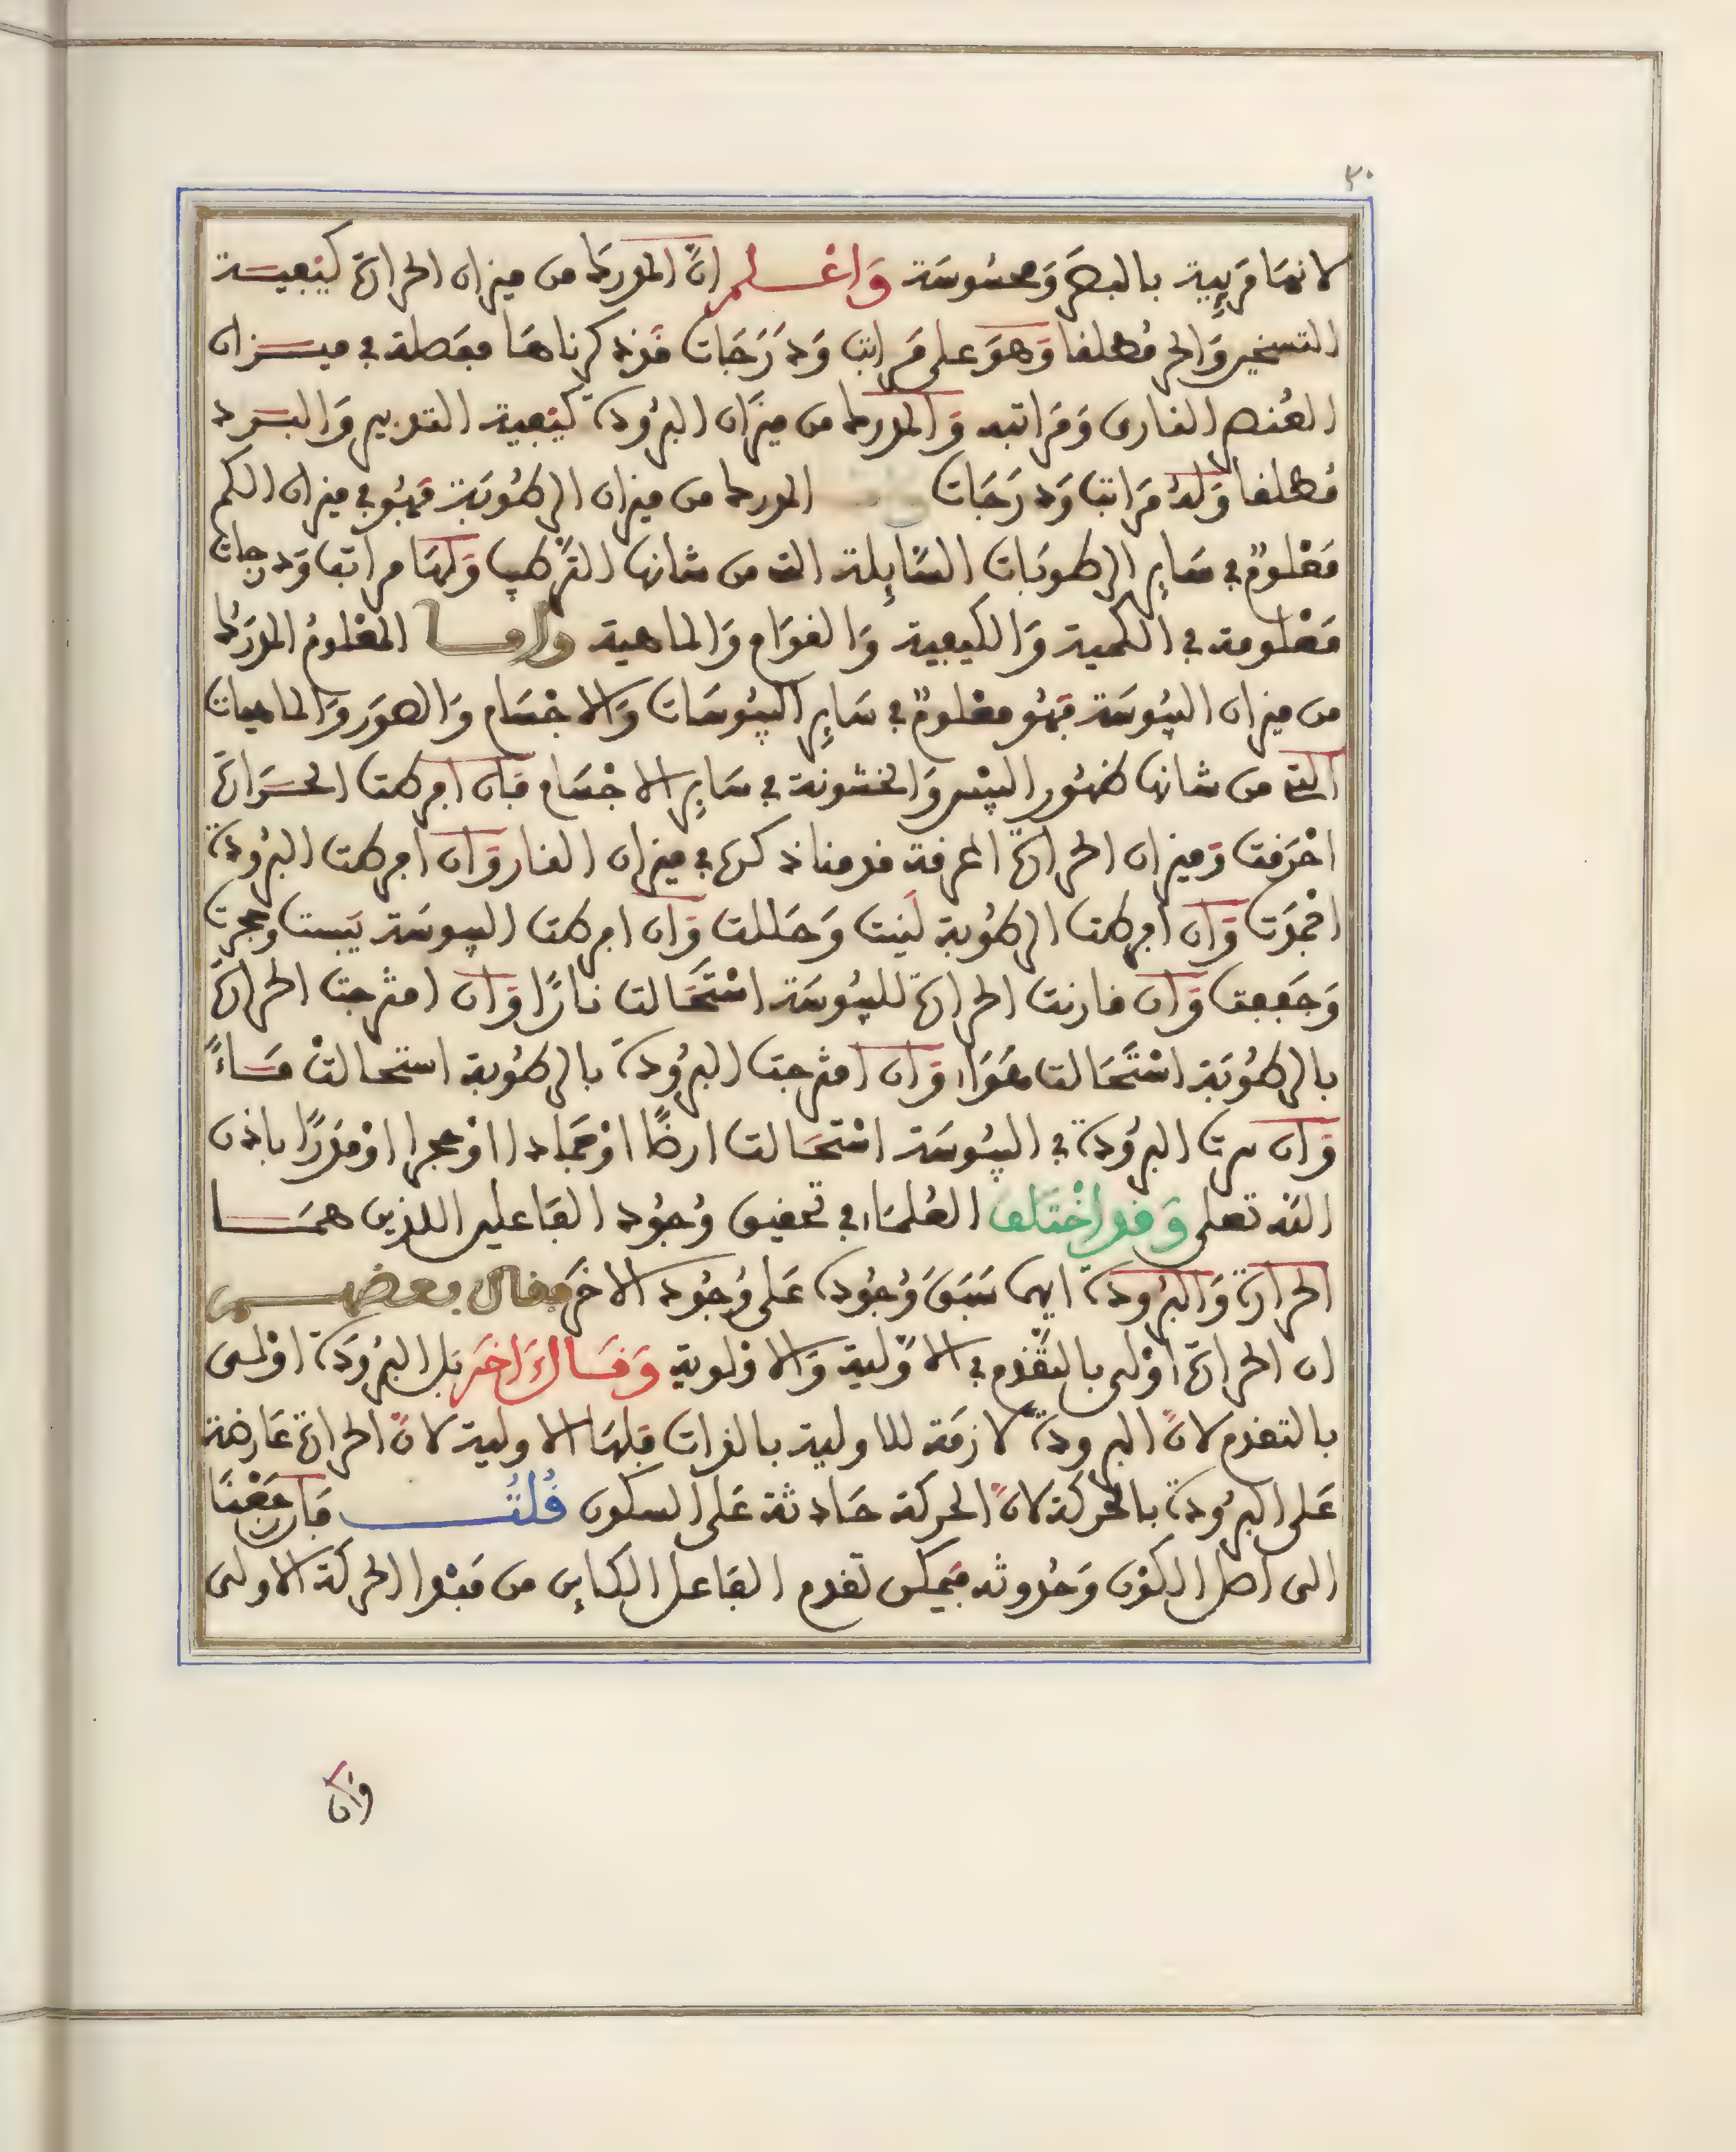 ٣٠
لانها مَرِيية بالبصَر وَمحسُوسَة وَاعْلم انّ المدرك من ميزان الحرارة كيفية
التسخير وَالحر مُطلقا وَهوَ على مَراتب وَدَرَجَات قَد ذكرناها مفصلة في ميزان
العُنصر النارى وَمَراتبه وَالمدرك من ميزان البرُودة كيفية التبريد وَالبرد
مُطلقا وَلهُ مَراتب وَدرَجَات المدرك من ميزان الرطُوبَة فهُو في ميزان الكم
مَعْلومٌ في سَاير الرطوبَات السَّايلة التى من شانها التَّركيب وَلهَا مراتب وَدرجات
مَعْلومة في الكمية وَالكيفية وَالقوَام وَالماهية واما المعْلومُ المدرَك
من ميزان اليبُوسَة فهُو معْلومٌ في سَايِر اليبُوسَات وَالاجْسَام وَالصوَر وَالماهيات
التى من شانها ظهُور اليبْس وَالخشونة في سَايِر الاجْسَام فان افرطت الحرَارة
احْرَقت وَميزان الحرارة المحرقة قدمنا ذكرها في ميزان النار وَان افرطت البرُودة
اخْمدَت وَان افرطت الرطُوبة لَيَنت وَحَللت وَان افرطت اليبوسَة يَبست وحجرت
وَجَففت وَان قارنت الحرارة لليبُوسَة اسْتَحَالت نارًا وَان امتزجت الحرَارة
بالرطُوبَة اسْتَحَالت هَوَا، وَان امتزجت البرُودة بالرطُوبة استحالتْ مَاءً
وَان سرت البرُودة في اليبُوسَة اسْتحَالت ارضًا اوْ جمَادا اوْ حجرا اوْ مَدَرًا باذن
الله تعلى وَقد اخْتَلف العُلمَاء في تحقيق وُجوُد الفَاعلين اللذين همَا
الحرارَة وَالبرُودة ايهما سَبَق وُجُوده عَلى وُجُود الاخَر فقال بعضهم
ان الحرارة اوْلى بالتَّقدم في الاوّلية وَالاوْلوية وَقَال اَخَر بَل البرُودَة اوْلى
بالتقدم لانّ البرودة لازمَة للاولية بالذات فلهَا الاولية لانّ الحرارة عَارضة
عَلى البرُودة بالحرَكة لانّ الحركة حَادثة عَلى السكون قُلتُ فَان رَجَعْنَا
الى اصل الكوْن وَحُدوثه فيمكن تقدم الفَاعل الكاين من مَبْدا الحركة الاولى
وان